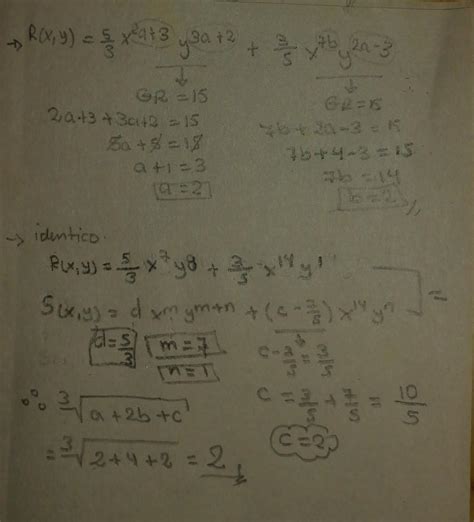 → R(x,y) = 5/3 x^2a+3 y^3a+2 + 3/5 x^7b y^2a-3
GR = 15
2a+3+3a+2 = 15
5a+5 = 15
a+1 = 3
a=2
GR = 15
7b+2a-3 = 15
7b+4-3 = 15
7b = 14
b=2
→ identico
R(x,y) = 5/3 x^7 y^8 + 3/5 x^14 y^1
S(x,y) = d x^m y^m+n + (c - 7/5) x^14 y^n =
d=5/3
m=7
n=1
c - 7/5 = 3/5
c = 3/5 + 7/5 = 10/5
c=2
∴ ∛a+2b+c
= ∛2+4+2 = 2